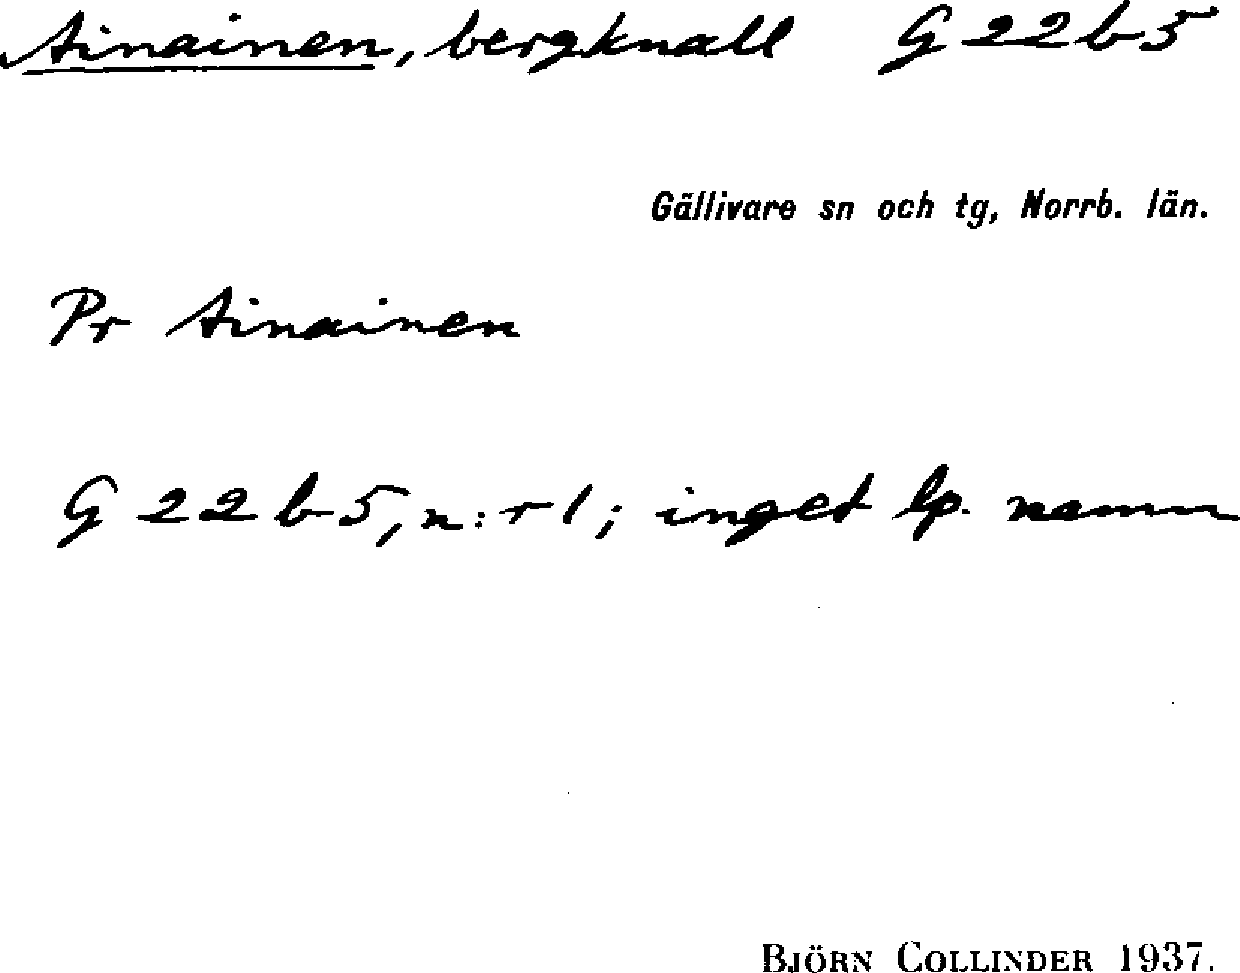 Ainainen, bergknall G 22 b 5
Gällivare sn och tg, Norrb. län.
Pr Ainainen
G 22 b 5, n:r 1; inget lp. namn
BJÖRN COLLINDER 1937.